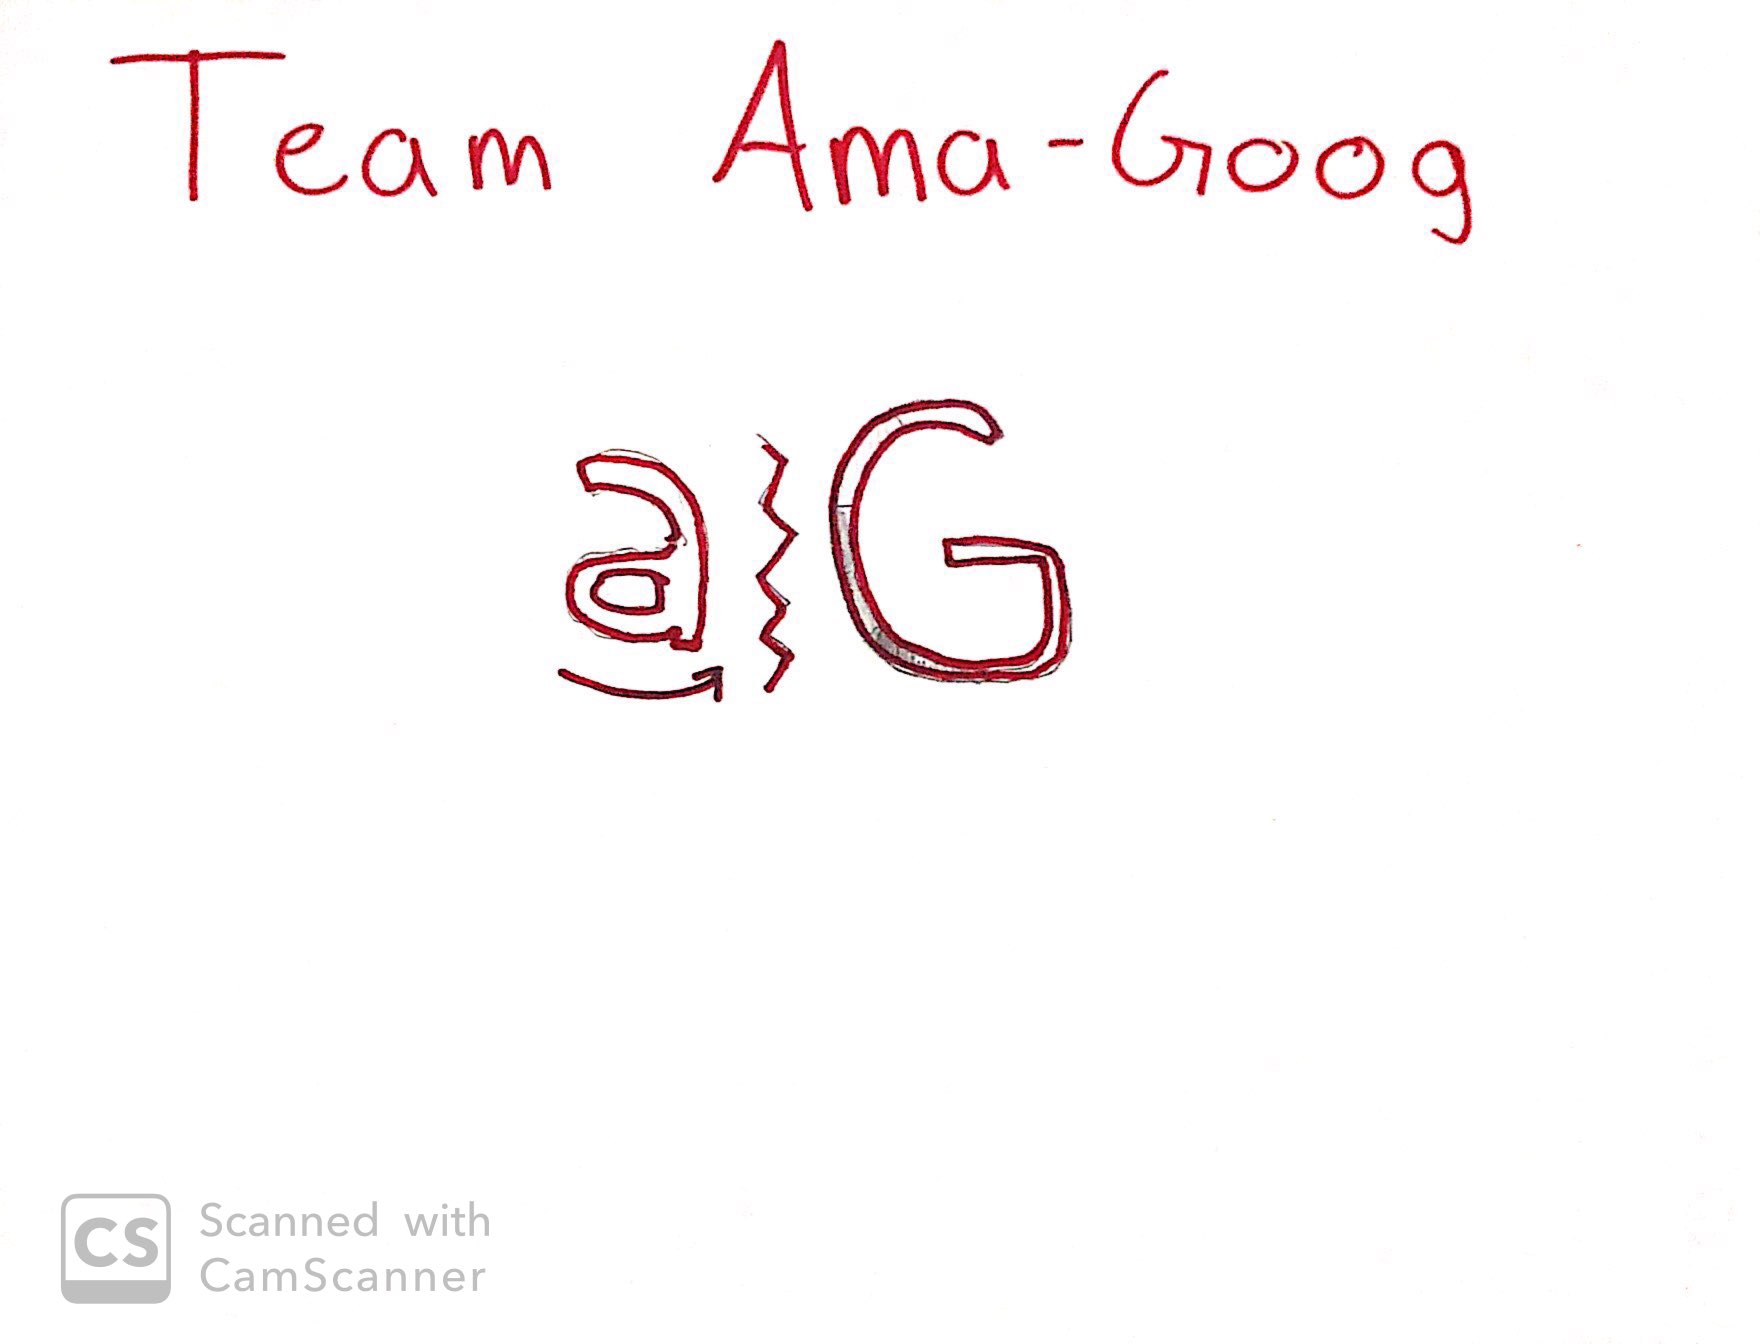 Team Ama-Goog
a G
CS Scanned with
CamScanner